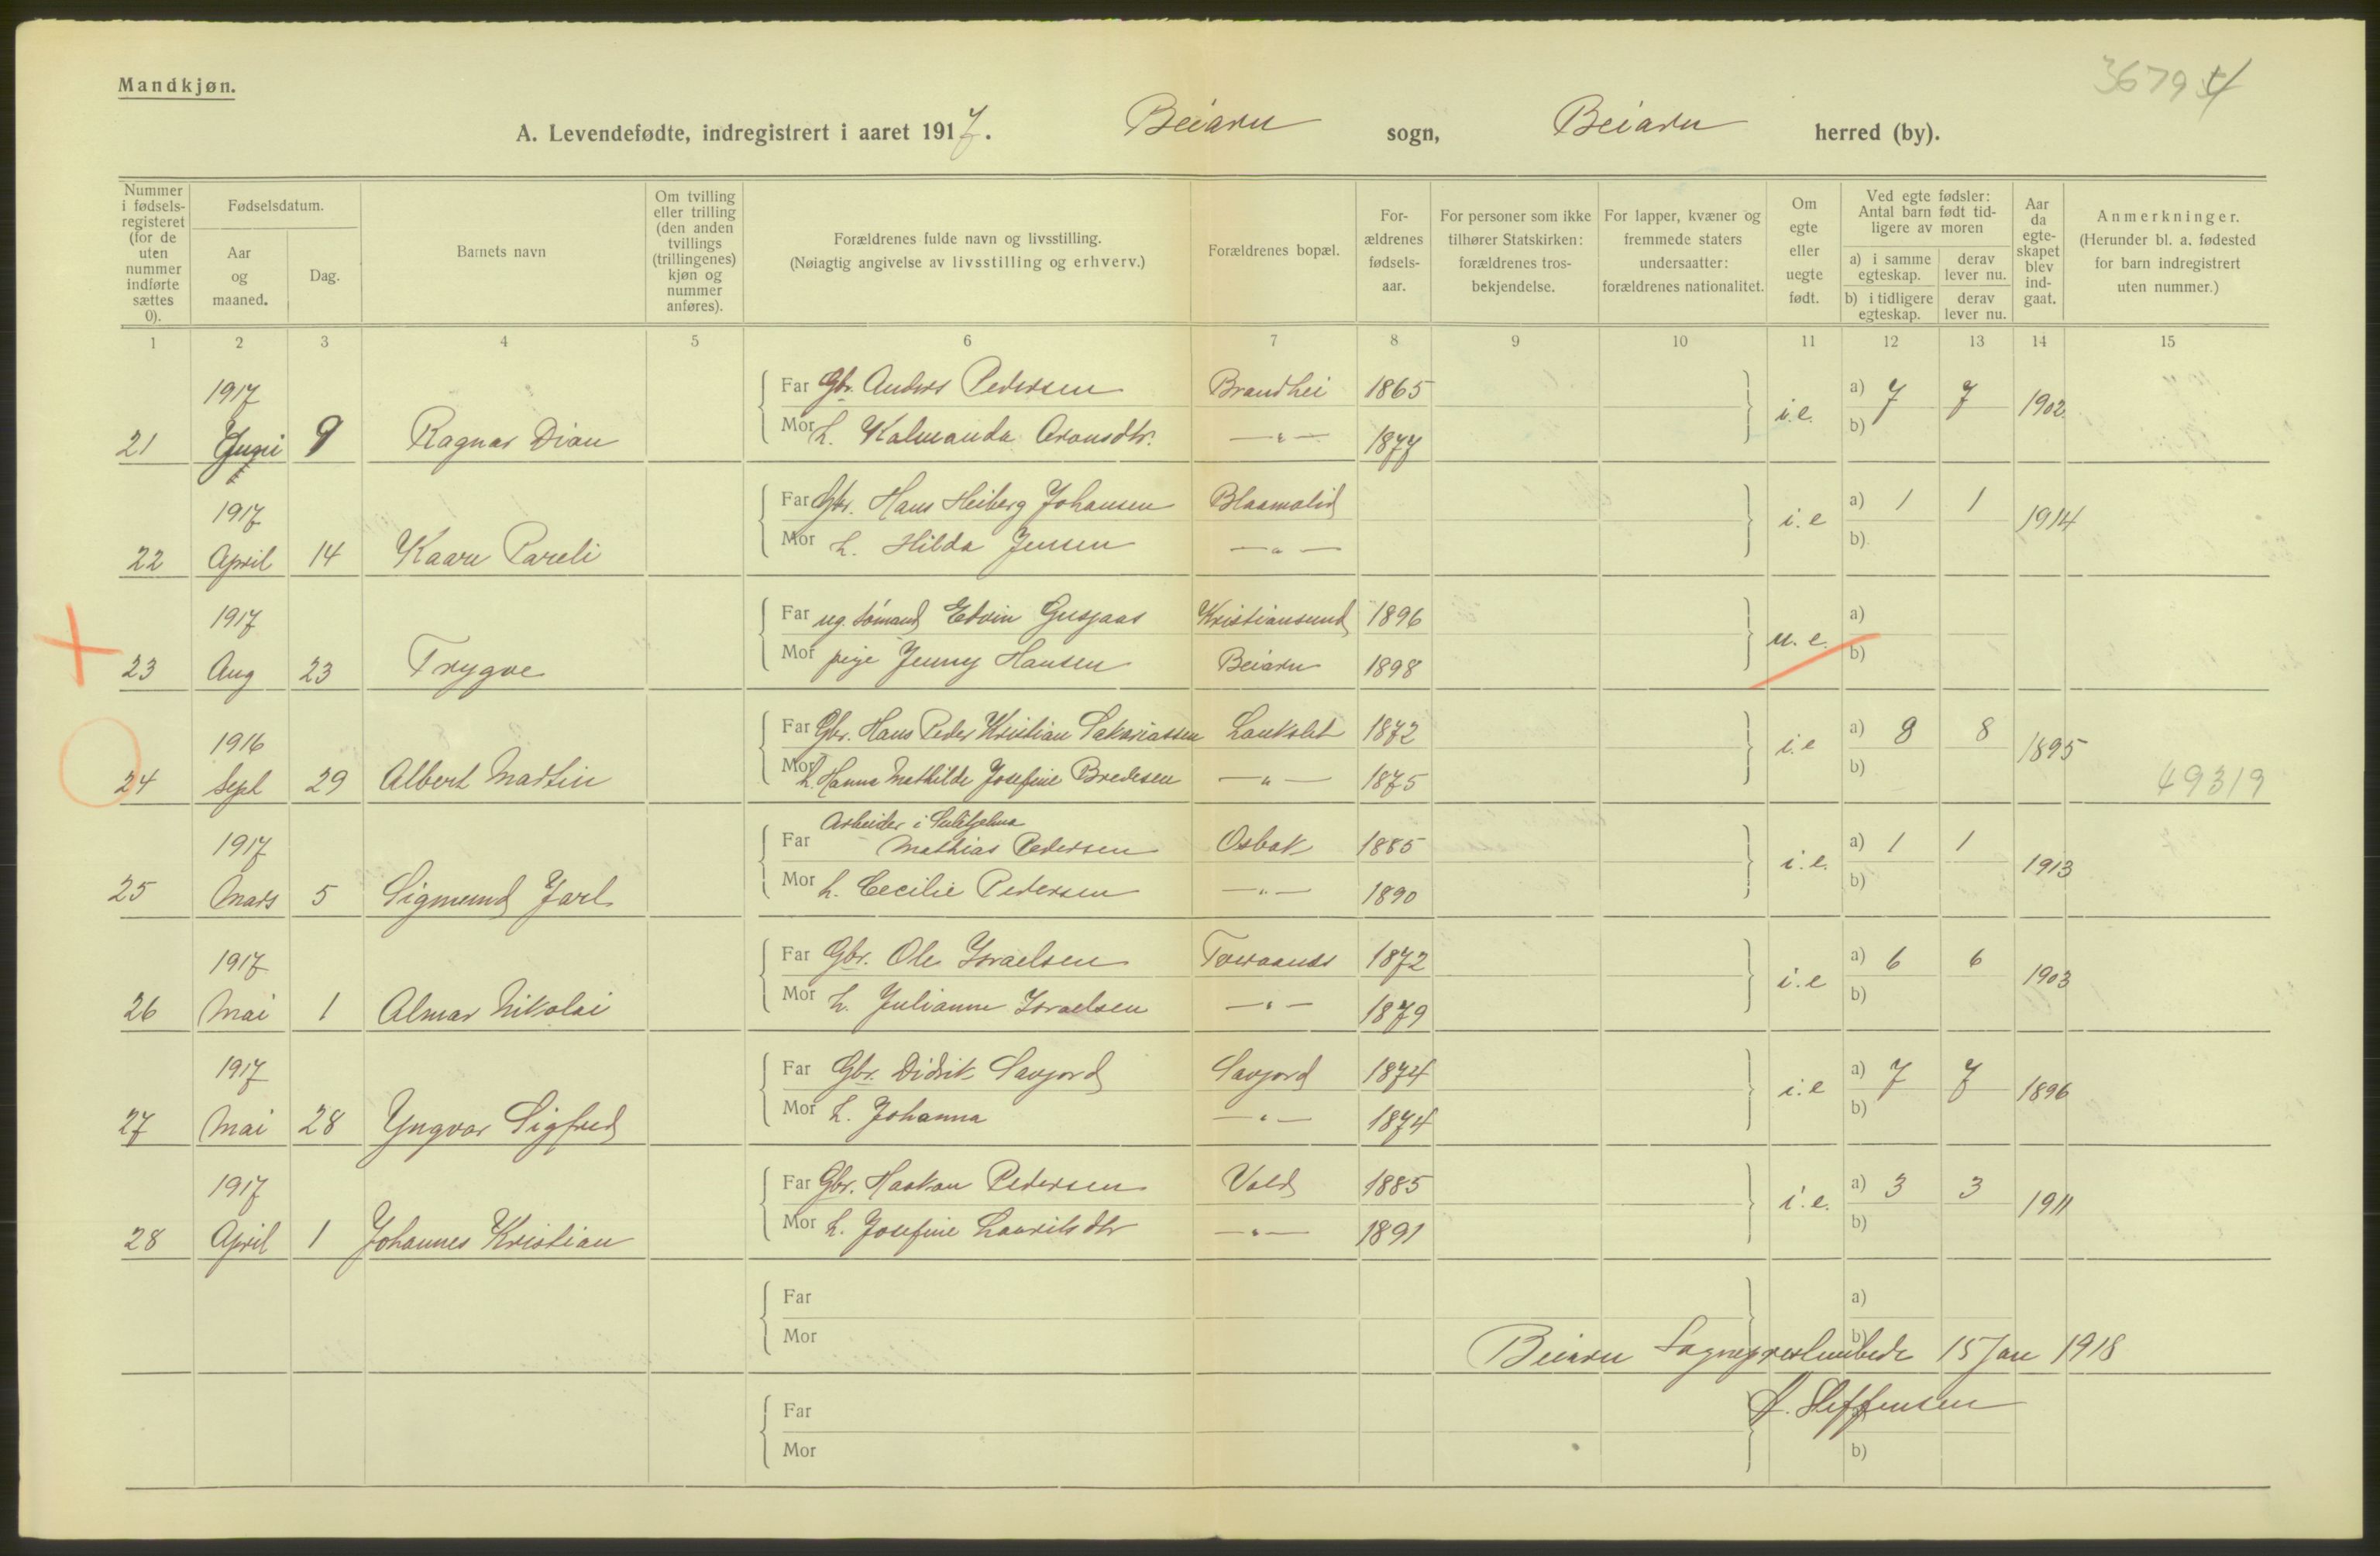 Mandkjøn.
36794
A. Levendefødte, indregistrert i aaret 1917. Beiarn sogn, Beiarn herred (by).
Nummer i fødsels-registeret (for de uten nummer indførte sættes 0).
Fødselsdatum.
Aar og maaned.
Dag.
Barnets navn
Om tvilling eller trilling (den anden tvillings (trillingenes) kjøn og nummer anføres).
Forældrenes fulde navn og livsstilling.
(Nøiagtig angivelse av livsstilling og erhverv.)
Forældrenes bopæl.
For-ældrenes fødsels-aar.
For personer som ikke tilhører Statskirken: forældrenes tros-bekjendelse.
For lapper, kvæner og fremmede staters undersaatter: forældrenes nationalitet.
Om egte eller uegte født.
Ved egte fødsler: Antal barn født tid-ligere av moren
a) i samme egteskap.
derav lever nu.
b) i tidligere egteskap.
derav lever nu.
Aar da egte-skapet blev ind-gaat.
Anmerkninger.
(Herunder bl. a. fødested for barn indregistrert uten nummer.)
1 2 3 4 5 6 7 8 9 10 11 12 13 14 15
1917 Far Gbr. Anders Pedersen Brandhei 1865 i.e. a) 7 7 1902
21 Juni 9 Ragnar Dian Mor h. Kalmanda Aronsdtr. —"— 1877 b)
1917 Far Gbr. Hans Heiberg Johansen Blaamolid i.e a) 1 1 1914
22 April 14 Kaare Pareli Mor h. Hilda Jensen —"— b)
1917 Far ug. sömand Edvin Gusjaas Kristiansund 1896 u.e. a)
23 Aug 23 Trygve Mor pige Jenny Hansen Beiarn 1898 b)
1916 Far Gbr. Hans Peder Kristian Sakariassen Laukslet 1872 i.e a) 8 8 1895
24 Sept 29 Albert Martin Mor h. Hanna Mathilde Josefine Bredesen —"— 1875 b) 49319
Arbeider i Sulitjelma
1917 Far Mathias Pedersen Osbak 1885 i.e. a) 1 1 1913
25 Mars 5 Sigmund Jarl Mor h. Cecilie Pedersen —"— 1890 b)
1917 Far Gbr. Ole Israelsen Tveraanes 1872 i.e a) 6 6 1903
26 Mai 1 Almar Nikolai Mor h. Julianne Israelsen —"— 1879 b)
1917 Far Gbr. Didrik Savjord Savjord 1874 i.e a) 7 7 1896
27 Mai 28 Yngvar Sigfred Mor h. Johanna —"— 1874 b)
1917 Far Gbr. Haakon Pedersen Vold 1885 i.e. a) 3 3 1911
28 April 1 Johannes Kristian Mor h. Josefine Lauritsdtr —"— 1891 b)
Far a)
Mor b) Beiarn Sogneprestembede 15 Jan 1918
Far A. Steffensen
Mor b)